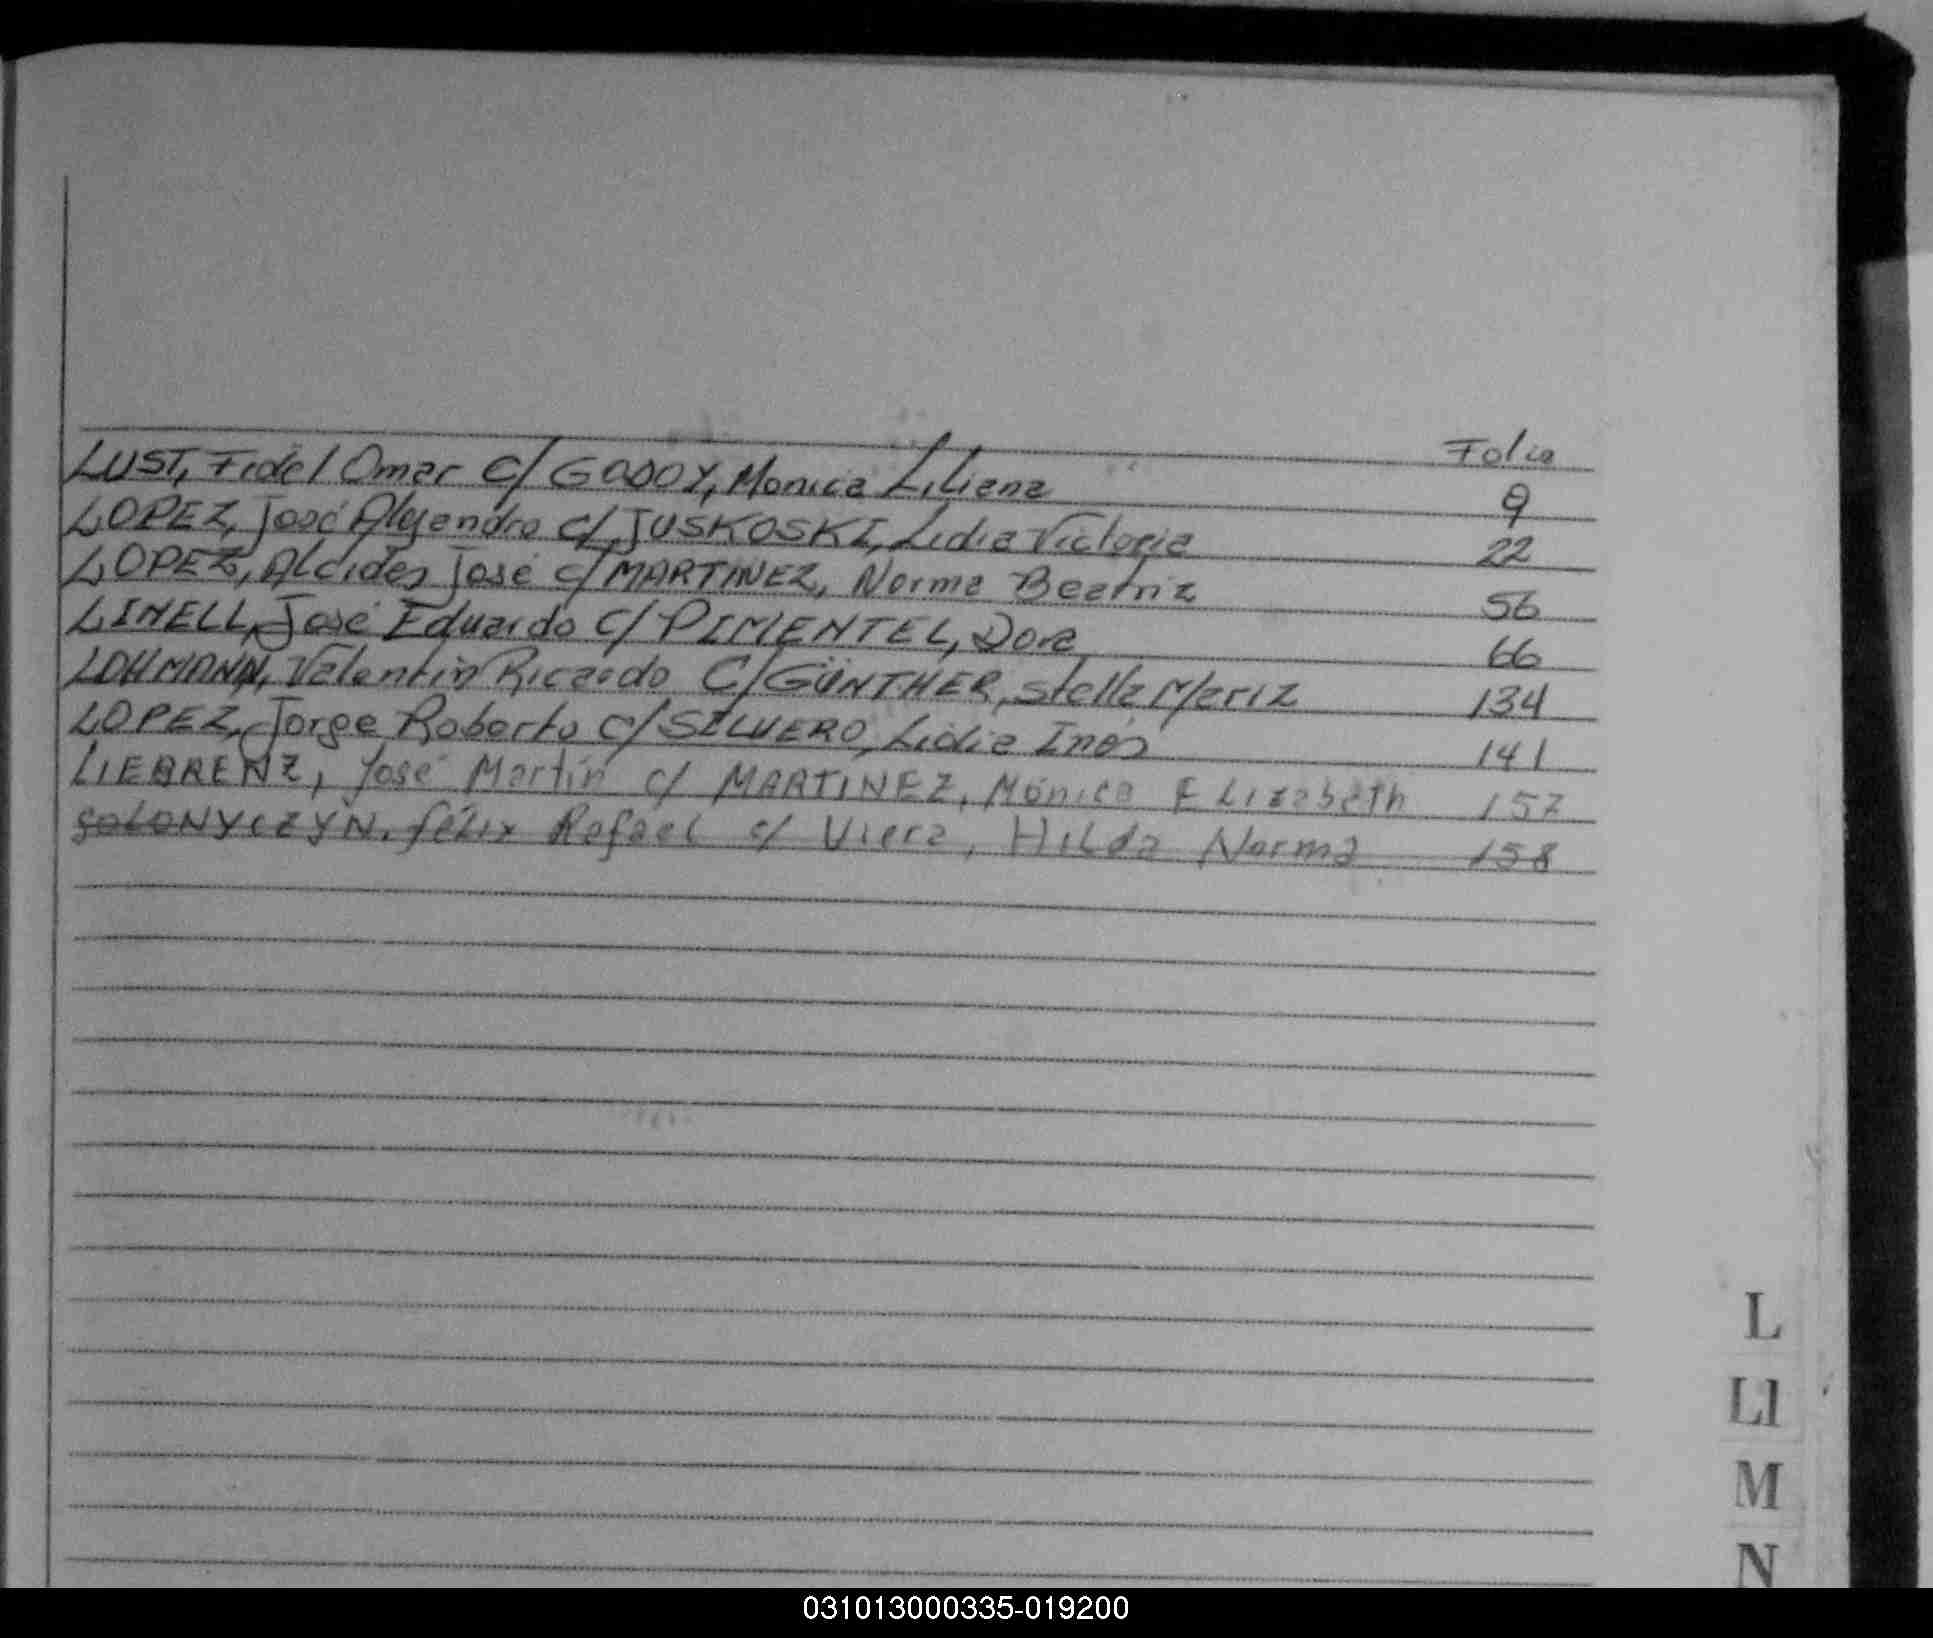 Folio
LUST, Fidel Omar c/ GODOY, Monica Liliana 9
LOPEZ, José Alejandro c/ JUSKOSKI, Lidia Victoria 22
LOPEZ, Alcides José c/ MARTINEZ, Norma Beatriz 56
LINELL, José Eduardo c/ PIMENTEL, Dora 66
LOHMANN, Valentin Ricardo C/ GÜNTHER, Stella Mariz 134
LOPEZ, Jorge Roberto c/ SILVERO, Lidia Inés 141
LIEBRENZ, José Martín c/ MARTINEZ, Mónica Elizabeth 157
SOLONYCZYN, félix Rafael c/ Viera, Hilda Norma 158
L
Ll
M
N
031013000335-019200